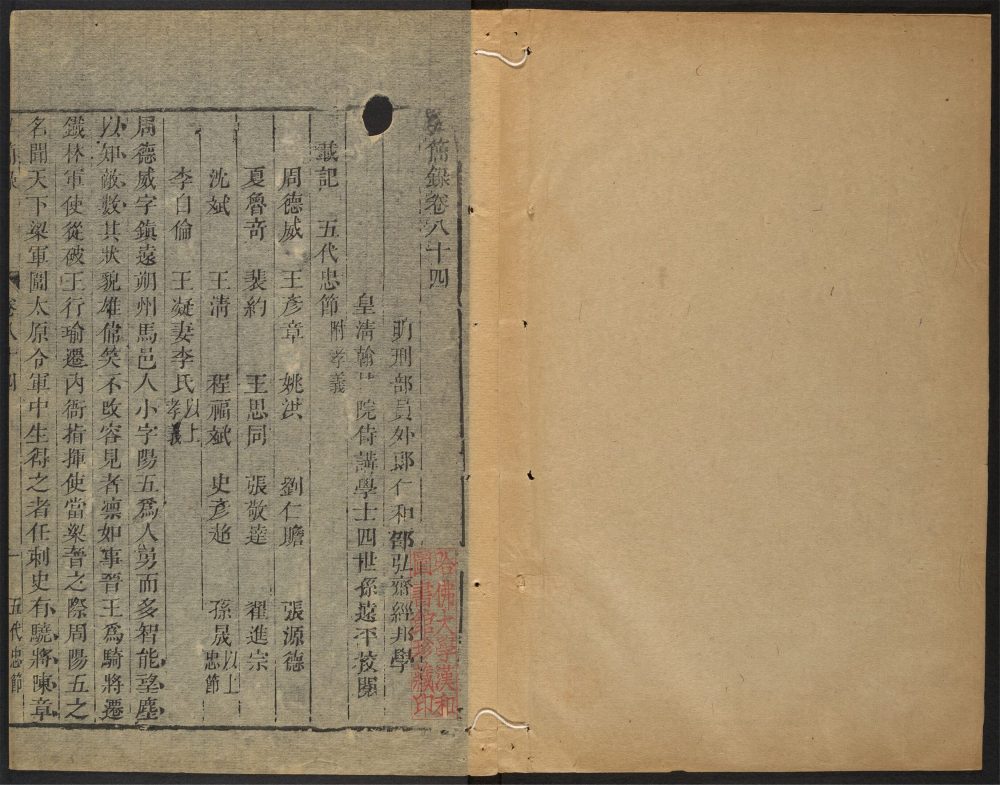 舊錄卷八十四
明刑部員外郎仁和邵弘齋經邦學
皇清翰林院侍講學士四世孫遠平校閱
載記 五代忠節附孝義
周德威 王彥章 姚洪 劉仁贍 張源德
夏魯奇 裴約 王思同 張敬達 翟進宗
沈斌 王清 程福斌 史彥超 孫晟以上忠節
李自倫 王凝妻李氏以上孝義
周德威字鎮遠朔州馬邑人小字陽五爲人勇而多智能望塵
以知敵數其狀貌雄偉笑不改容見者凛如事晉王爲騎將遷
鐵林軍使從破王行瑜遷內衙指揮使當梁晉之際周陽五之
名聞天下梁軍圍太原令軍中生得之者任刺史有驍將陳章
卷八十四 一 五代忠節
哈佛大學漢和
圖書館珍藏印